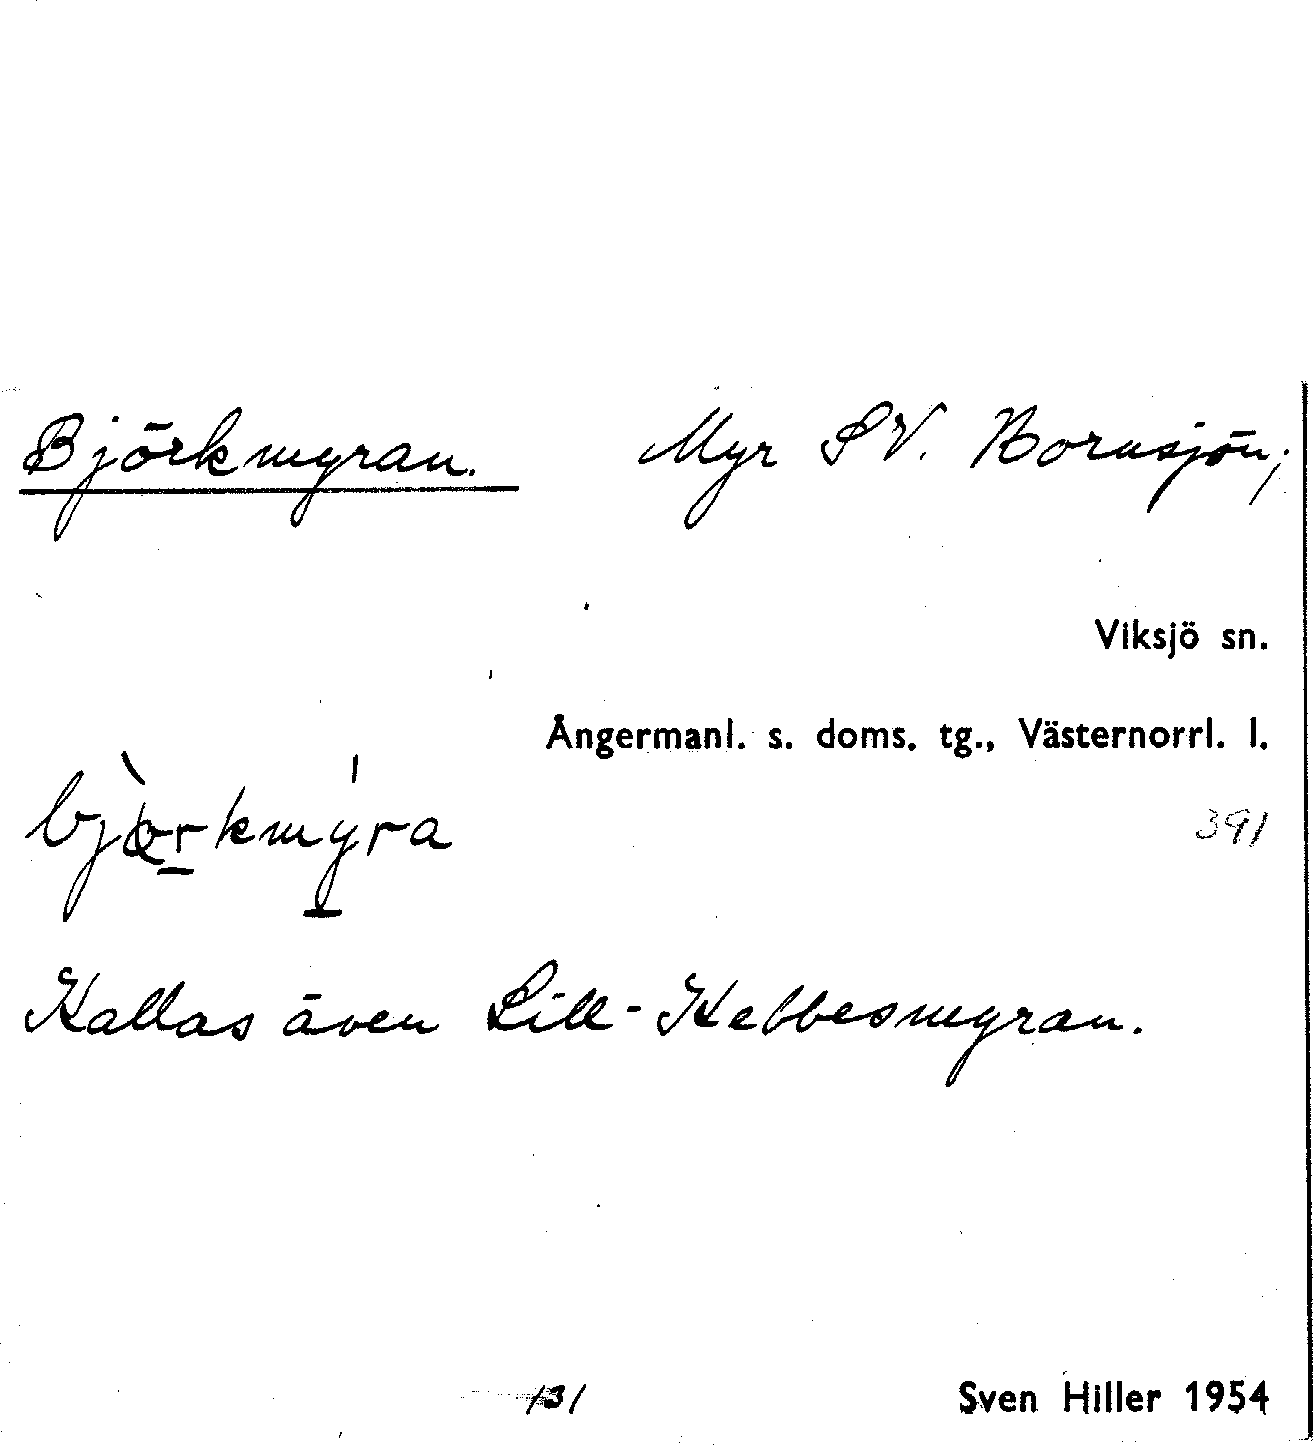 Björkmyran. Myr SV. Bornsjön;
Viksjö sn.
Ångermanl. s. doms. tg., Västernorrl. l.
391
Kallas även Lill-Kebbesmyran.
131
Sven Hiller 1954